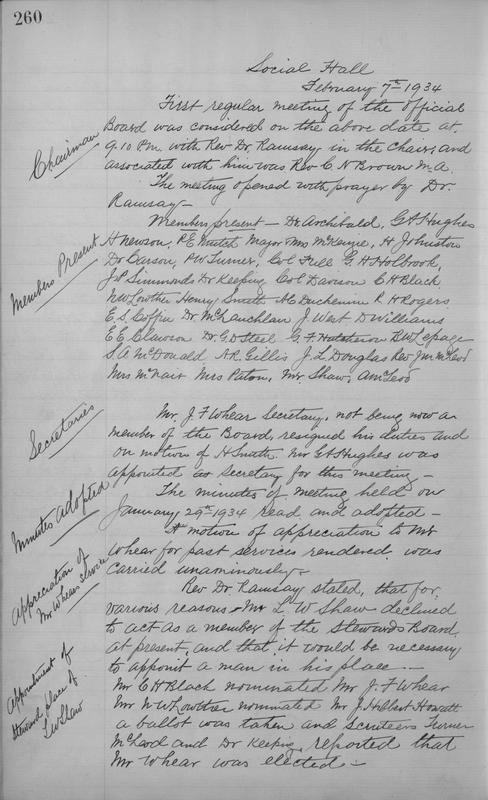 260
Social Hall
February 7th 1934
First regular meeting of the Official
Board was considered on the above date at
9.10 P.m. with Rev Dr. Ramsay in the Chair, and
associated with him was Rev C. N Brown M.A.
Chairman
The meeting opened with prayer by Dr.
Ramsay—
Members present — Dr. Archibald, G A Hughes
H Newson, P. E. Mutch Major Mrs McKenzie, H Johnston
Dr Carson, P W Turner, Col Full G. H Holbrook,
Members Present
J. P Simmonds Dr Keeping Col Dawson C H Black,
N W Lowther Henry Smith A E Duchemin R H Rogers
E S. Coffin Dr. McLauchlan J. West D Williams
E E. Clawson Dr. G D Steel G. F. Hutcheson B W Lepage
S. A McDonald A R. Gillis J. L. Douglas Rev Jm McLeod
Mrs McNair Mrs Paton, Mr Shaw, A McLeod
Secretaries
Mr. J F Whear Secretary, not being now a
member of the Board, resigned his duties and
on motion of H Smith Mr G A Hughes was
appointed as Secretary for this meeting —
Minutes adopted
The minutes of meeting held on
January 29th 1934 read and adopted —
A motion of appreciation to Mr
Whear for past services rendered was
carried unaminously.
Appreciation of
Mr Whears service
Rev Dr. Ramsay stated, that for
various reasons Mr L W Shaw declined
to act as a member of the Stewards Board
at present, and that it would be necessary
to appoint a man in his place —
Appointment of
steward place of
L W Shaw
Mr C H Black nominated Mr J. F Whear
Mr N W Lowther nominated Mr J. Hilbert Howatt
a ballot was taken and scruteers Turner
McLeod and Dr Keeping, reported that
Mr Whear was elected —